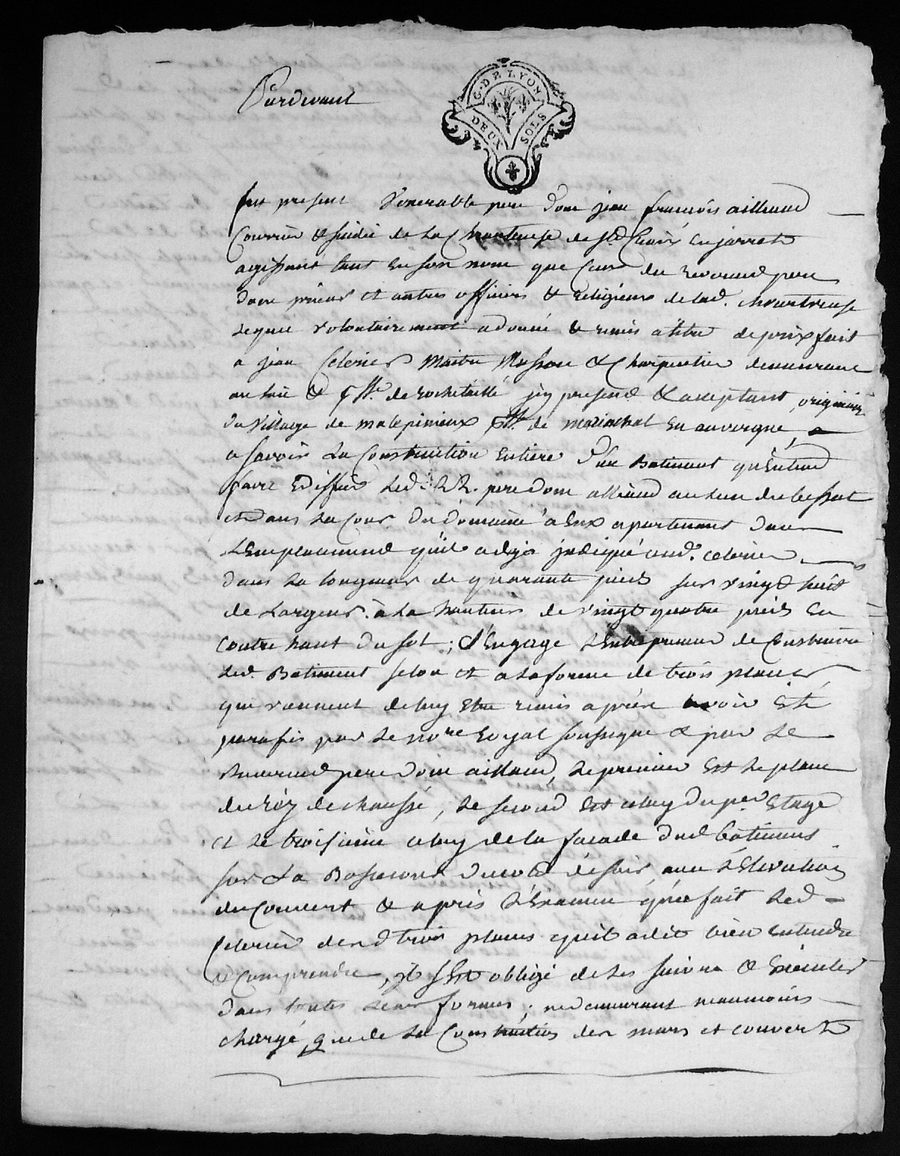 Pardevant
G. DE LYON
DEUX SOLS
fut present Venerable pere dom jean françois ailliaud
Courrier & sindic de la Chartreuse de Ste Croix en jarrets
agissant tant en son nom que Celuy du reverend pere
dom prieur et autres officiers & religieux de lad. chartreuse
lequel volontairement a donné & remis a titre de prixfait
a jean Celerier Maitre Masson & Charpentier demeurant
au lieu & psse de rochetaillé jcy present & acceptant, originaire
du Village de malpinieux psse de marinchal en auvergne
a savoir La Construction Entiere d'un Batiment qu'Entend
faire Ediffier Led. R. pere dom ailliaud au lieu du bessat
et dans La Cour du domaine a Eux apartenant dans
L'Emplacement qu'il a deja jndiqué aud. celerier
dans La longueur de quarante pieds sur vingt huit
de Largeur, a La hauteur de vingt quatre pieds En
contre haut du sol; S'Engage L'Entrepreneur de Construire
Led. Batiment selon et a La forme de trois plans
qui viennent de luy Etre remis après avoir Eté
parafés par Le nore Royal soussigné & par Le
Reverend pere dom ailliaud, Le premier Est Le plan
du réz de chaussé, Le second Est celuy du per Etage
et Le troisième celuy de la facade dud. batiment
sur La Basse cour du coté de soir, avec L'Elevation
du Couvert & après L'Examen qu'a fait Led.
Celerier desd. trois plans qu'il a dit bien entendre
& Comprendre, jl s'Est obligé de Les suivre & Executer
dans toutes Leurs formes; ne demeurant neanmoins
chargé que de La Construction des murs et couvert